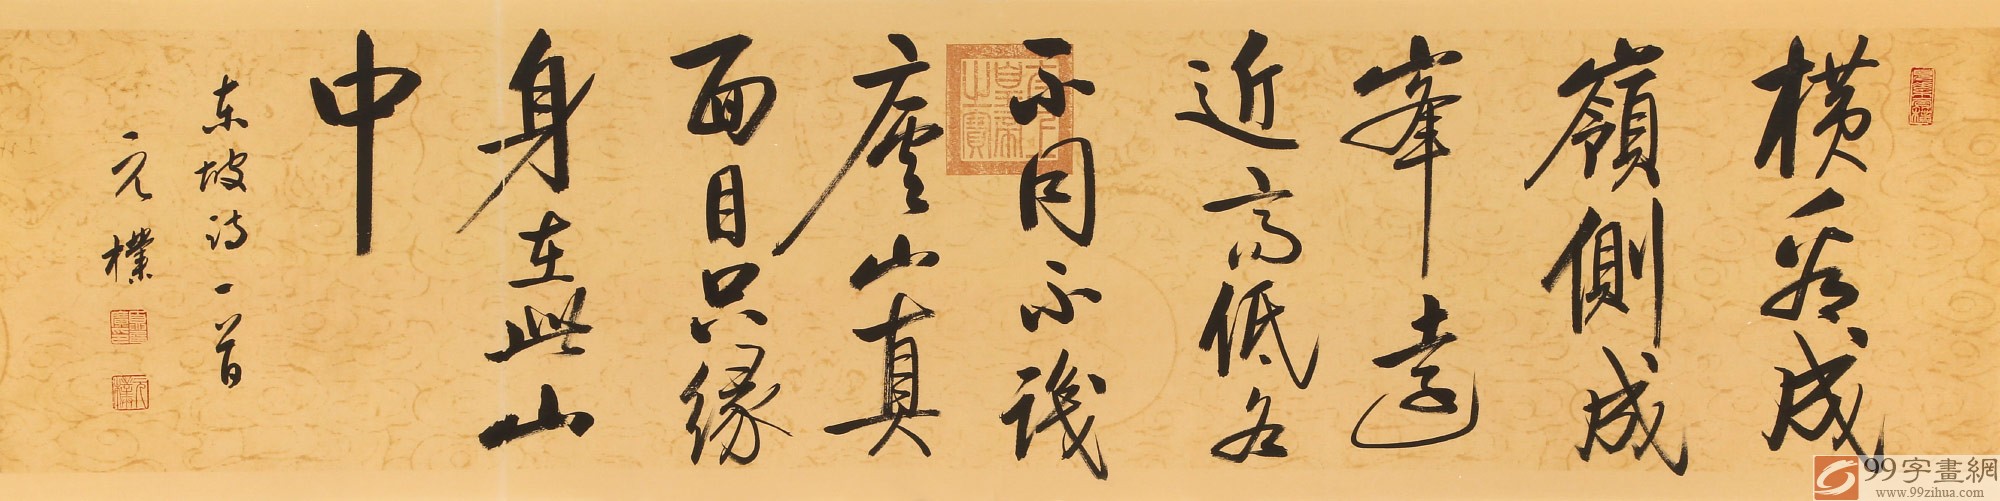 橫看成
嶺側成
峯遠
近高低各
不同不識
廬山真
面目只緣
身在此山
中
东坡诗一首
元樸
99字畫網
www.99zihua.com